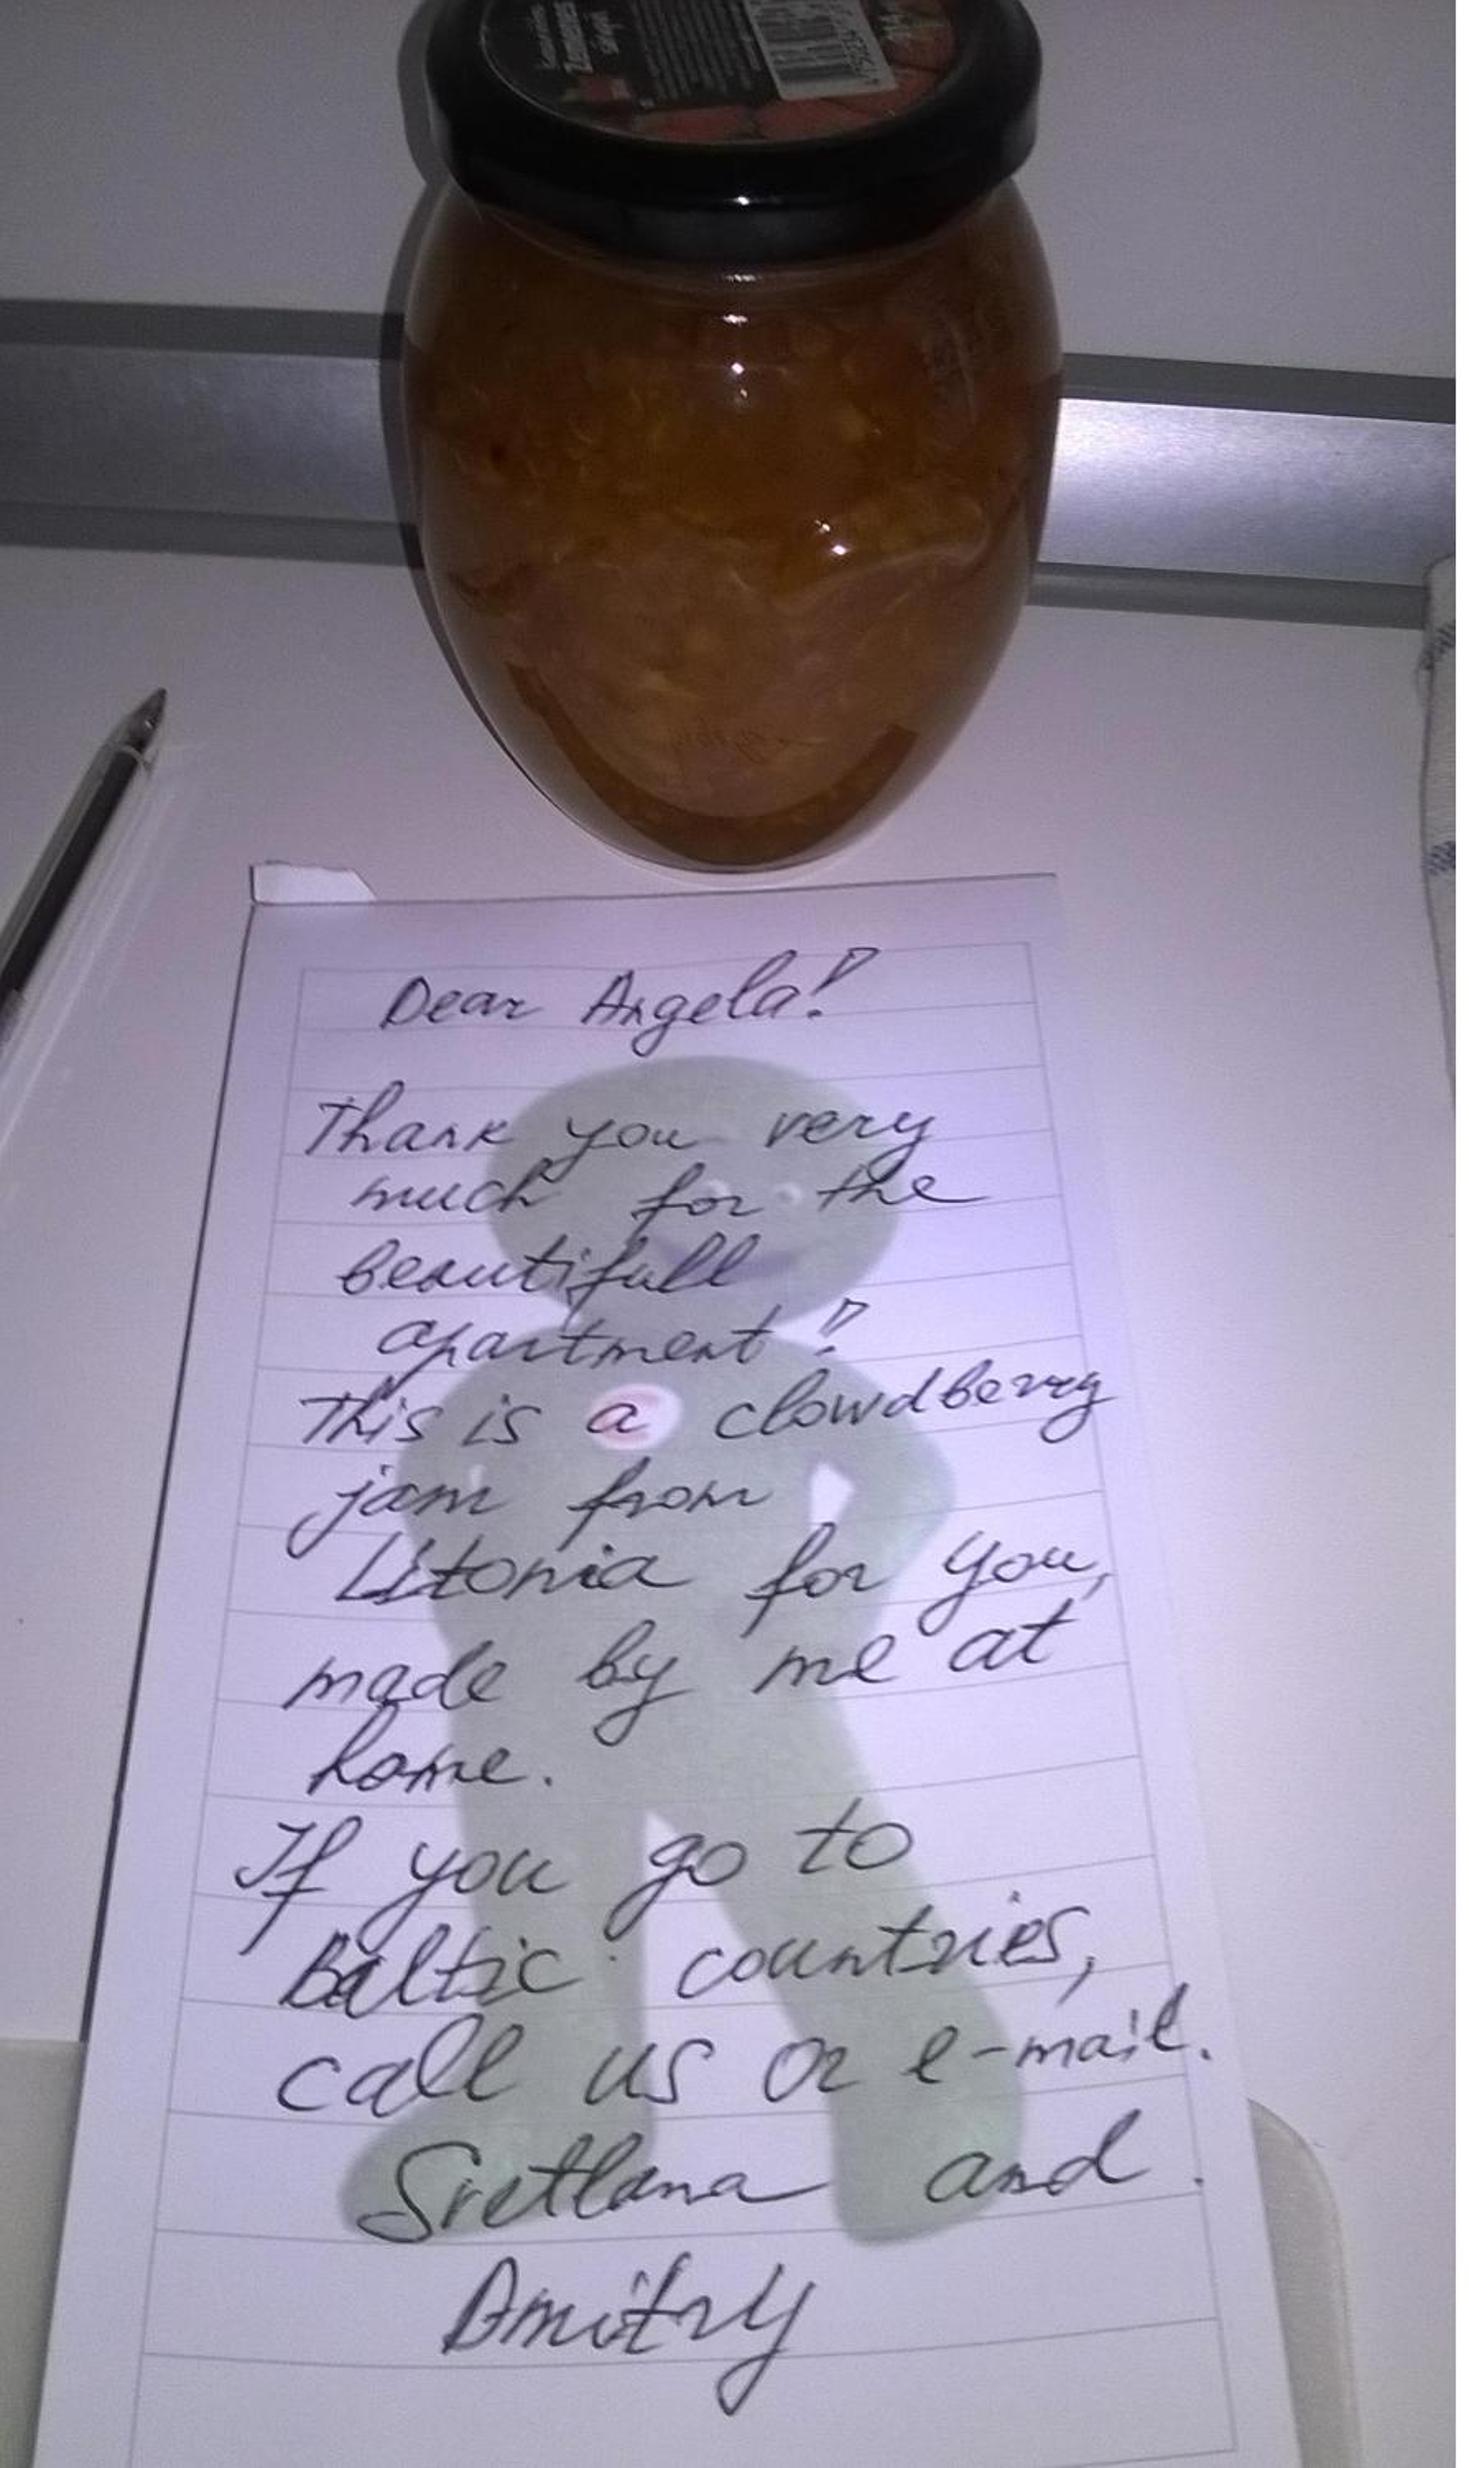 Dear Angela!
Thank you very
much for the
beautifull
apartment!
This is a clowdberry
jam from
for you,
made by me at
home.
If you go to
Baltic countries,
call us or e-mail.
Svetlana and
Dmitry